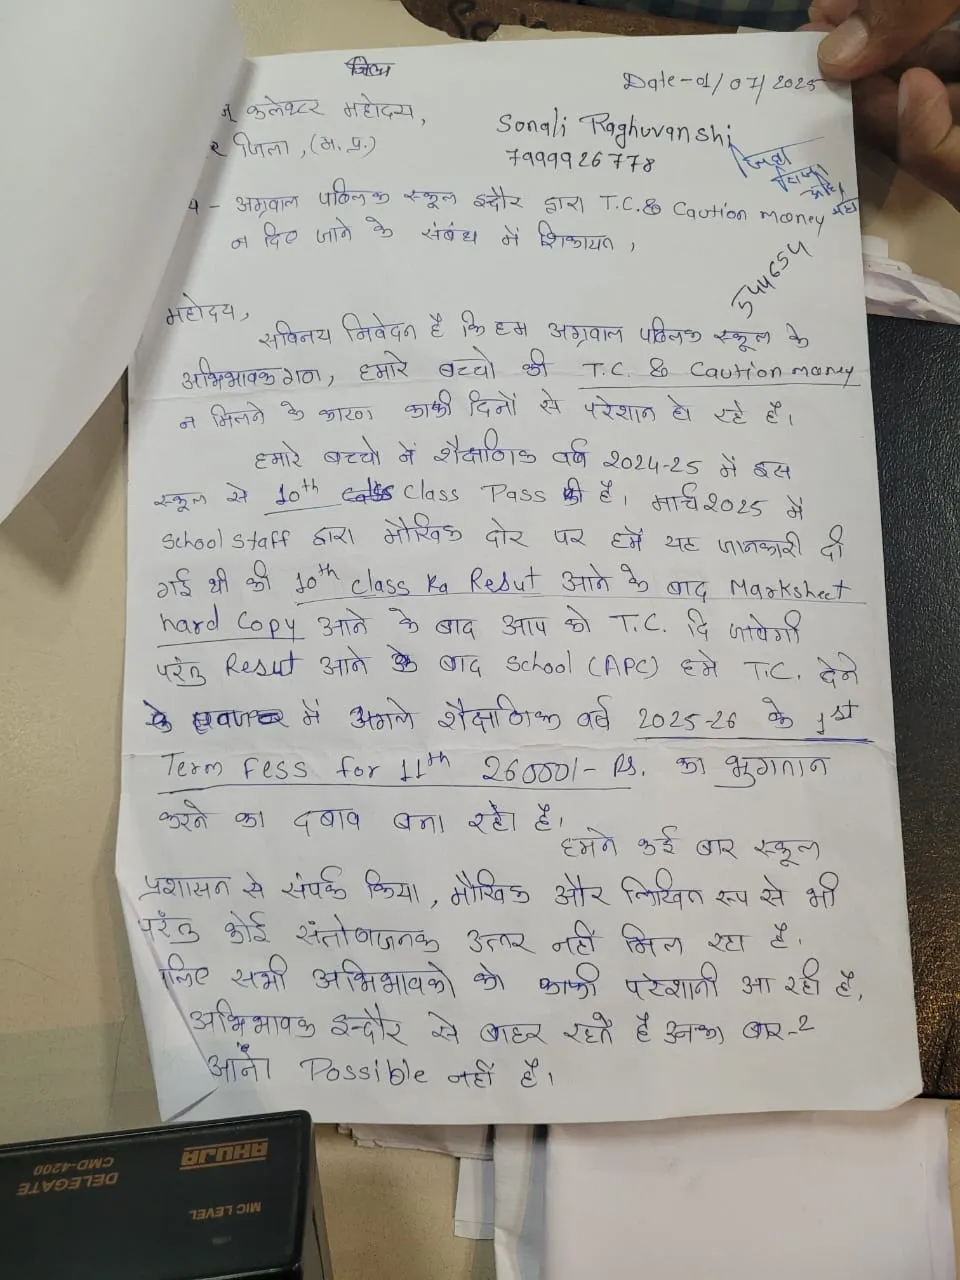 जिला
Date-01/07/2025
कलेक्टर महोदय,
Sonali Raghuvanshi
जिला, (म.प्र.)
7999926778
जिला
शिक्षा
- अग्रवाल पब्लिक स्कूल इन्दौर द्वारा T.C. & Caution mooney
न दिए जाने के संबंध में शिकायत,
544654
महोदय,
सविनय निवेदन है कि हम अग्रवाल पब्लिक स्कूल के
अभिभावकगण, हमारे बच्चो की T.C. & Caution money
न मिलने के कारण काफी दिनों से परेशान हो रहे है।
हमारे बच्चो में शैक्षणिक वर्ष 2024-25 में इस
स्कूल से 10th Class Pass की है। मार्च 2025 में
School Staff द्वारा मौखिक दोर पर हमें यह जानकारी दी
गई थी की 10th Class Ka Resut आने के बाद Marksheet
hard Copy आने के बाद आप को T.C. दि जावेगी
परंतु Resut आने के बाद School (APC) हमे T.C. देने
के में अगले शैक्षणिक वर्ष 2025-26 के 1st
Term Fess for 11th 26000/- Rs. का भुगतान
करने का दबाव बना रहे है।
हमने कई बार स्कूल
प्रशासन से संपर्क किया, मौखिक और लिखित रूप से भी
परंतु कोई संतोषजनक उत्तर नहीं मिल रहा है.
लिए सभी अभिभावको को काफी परेशानी आ रही है,
अभिभावक इन्दौर से बाहर रहते है उनका बार-2
आना Possible नहीं है।
AHUJA
DELEGATE
CMD-4200
MIC LEVEL